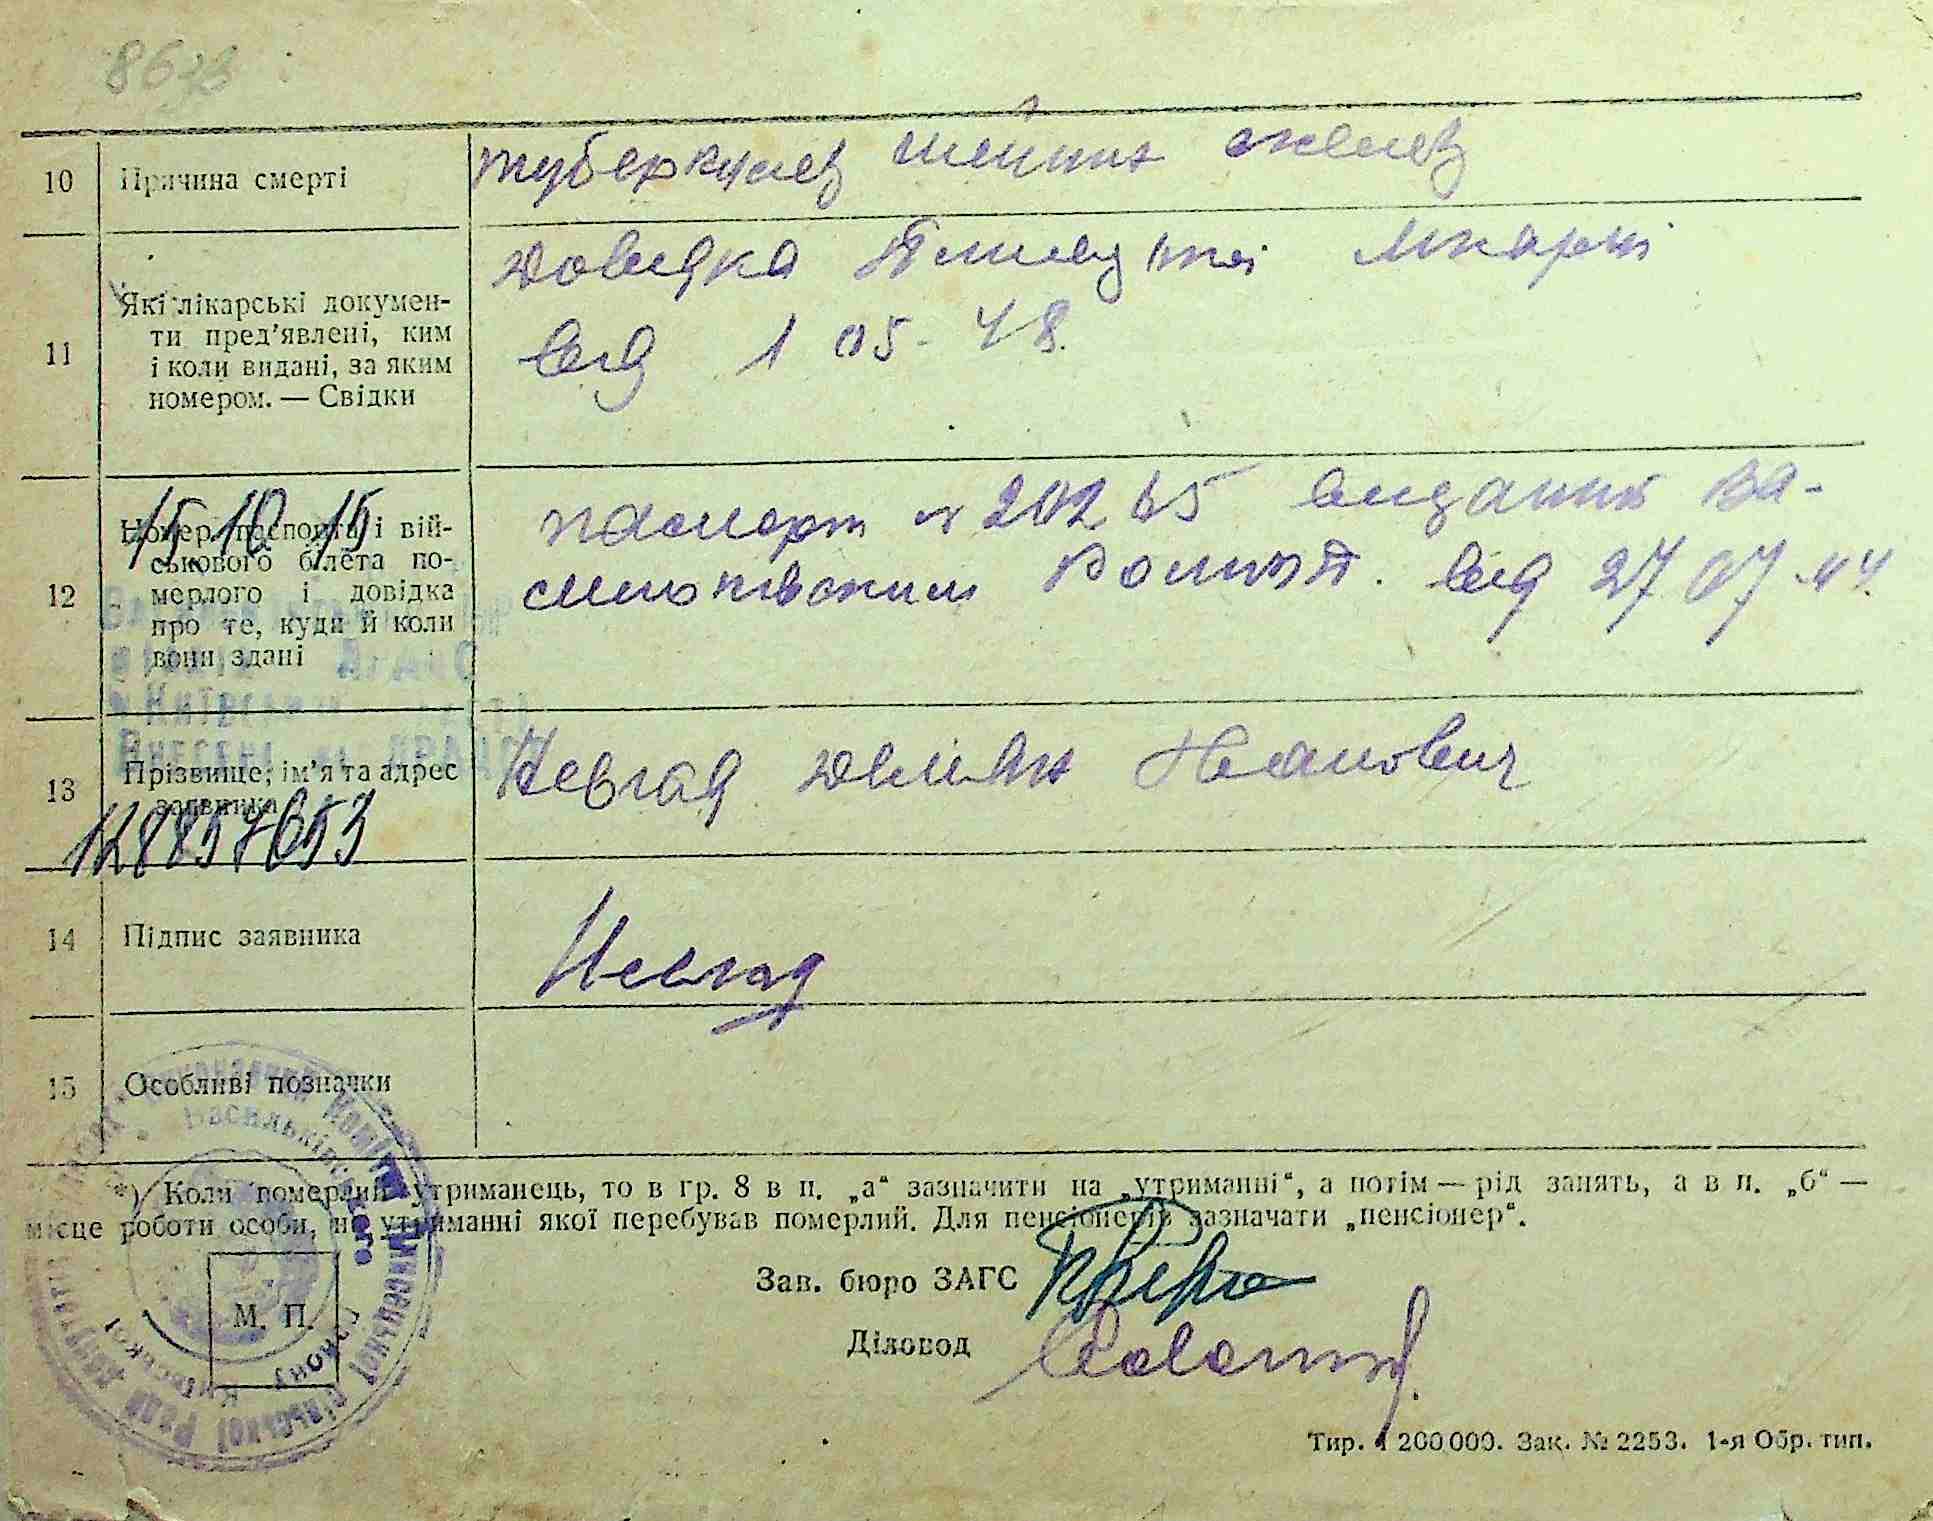 10 Причина смерті туберкульоз шейних желез
11 Які лікарські докумен-
ти пред'явлені, ким
і коли видані, за яким
номером. — Свідки
довидка лікарні
від 1 05. 48.
12 Номер паспорта і вій-
ськового білета по-
мерлого і довідка
про те, куди й коли
вони здані
15 10 15
паспорт № 20265 виданий Ва-
сильківским від 27 07 44.
13 Прізвище, ім'я та адрес
заявника
Невгад Демян Иванович
128857653
14 Підпис заявника Невгад
15 Особливі позначки
*) Коли померлий утриманець, то в гр. 8 в п. „а“ зазначити на „утриманні“, а потім — рід занять, а в п. „б“ —
місце роботи особи, на утриманні якої перебував померлий. Для пенсіонерів зазначати „пенсіонер“.
Зав. бюро ЗАГС
М. П.
Діловод
Тир. 1 200 000. Зак. № 2253. 1-я Обр. тип.